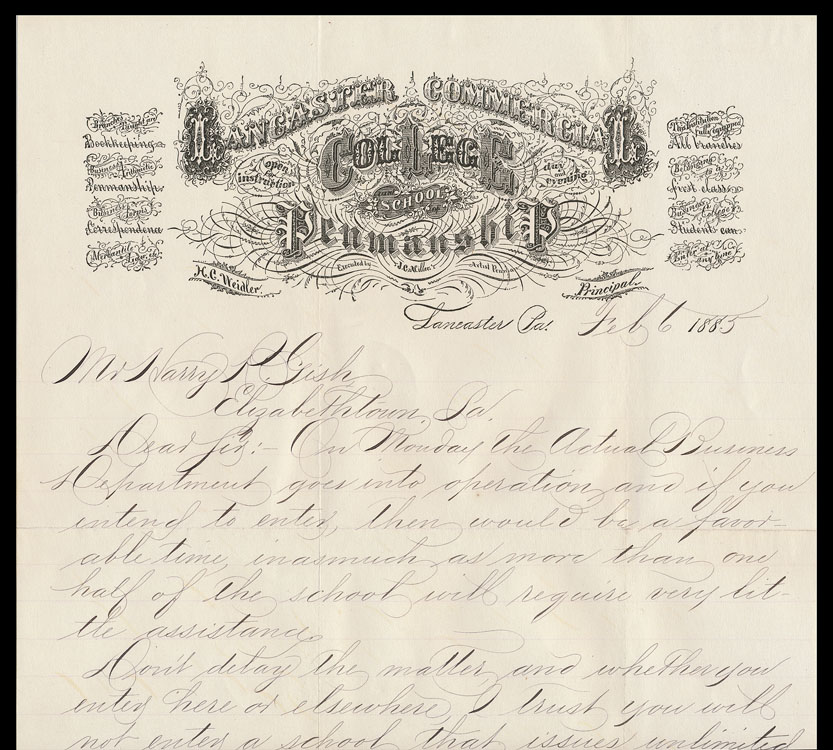 LANCASTER COMMERCIAL
COLLEGE
open for instruction
day and evening
SCHOOL
Penmanship
Branches Taught are
Bookkeeping
Business Arithmetic
Penmanship
Business Forms
Correspondence
Mercantile
This Institution fully equipped
All branches
Belonging to a
first class
Business College
Students can
Enter at any time
Executed by
H.C. Weidler.
Principal.
Lancaster Pa. Feb 6 1885
Mr Harry R. Gish
Elizabethtown, Pa.
Dear Sir:- On Monday the Actual Business
Department goes into operation and if you
intend to enter, then would be a favor-
able time, inasmuch as more than one
half of the school will require very lit-
tle assistance.
Don't delay the matter and whether you
enter here or elsewhere, I trust you will
not enter a school that issues unlimited